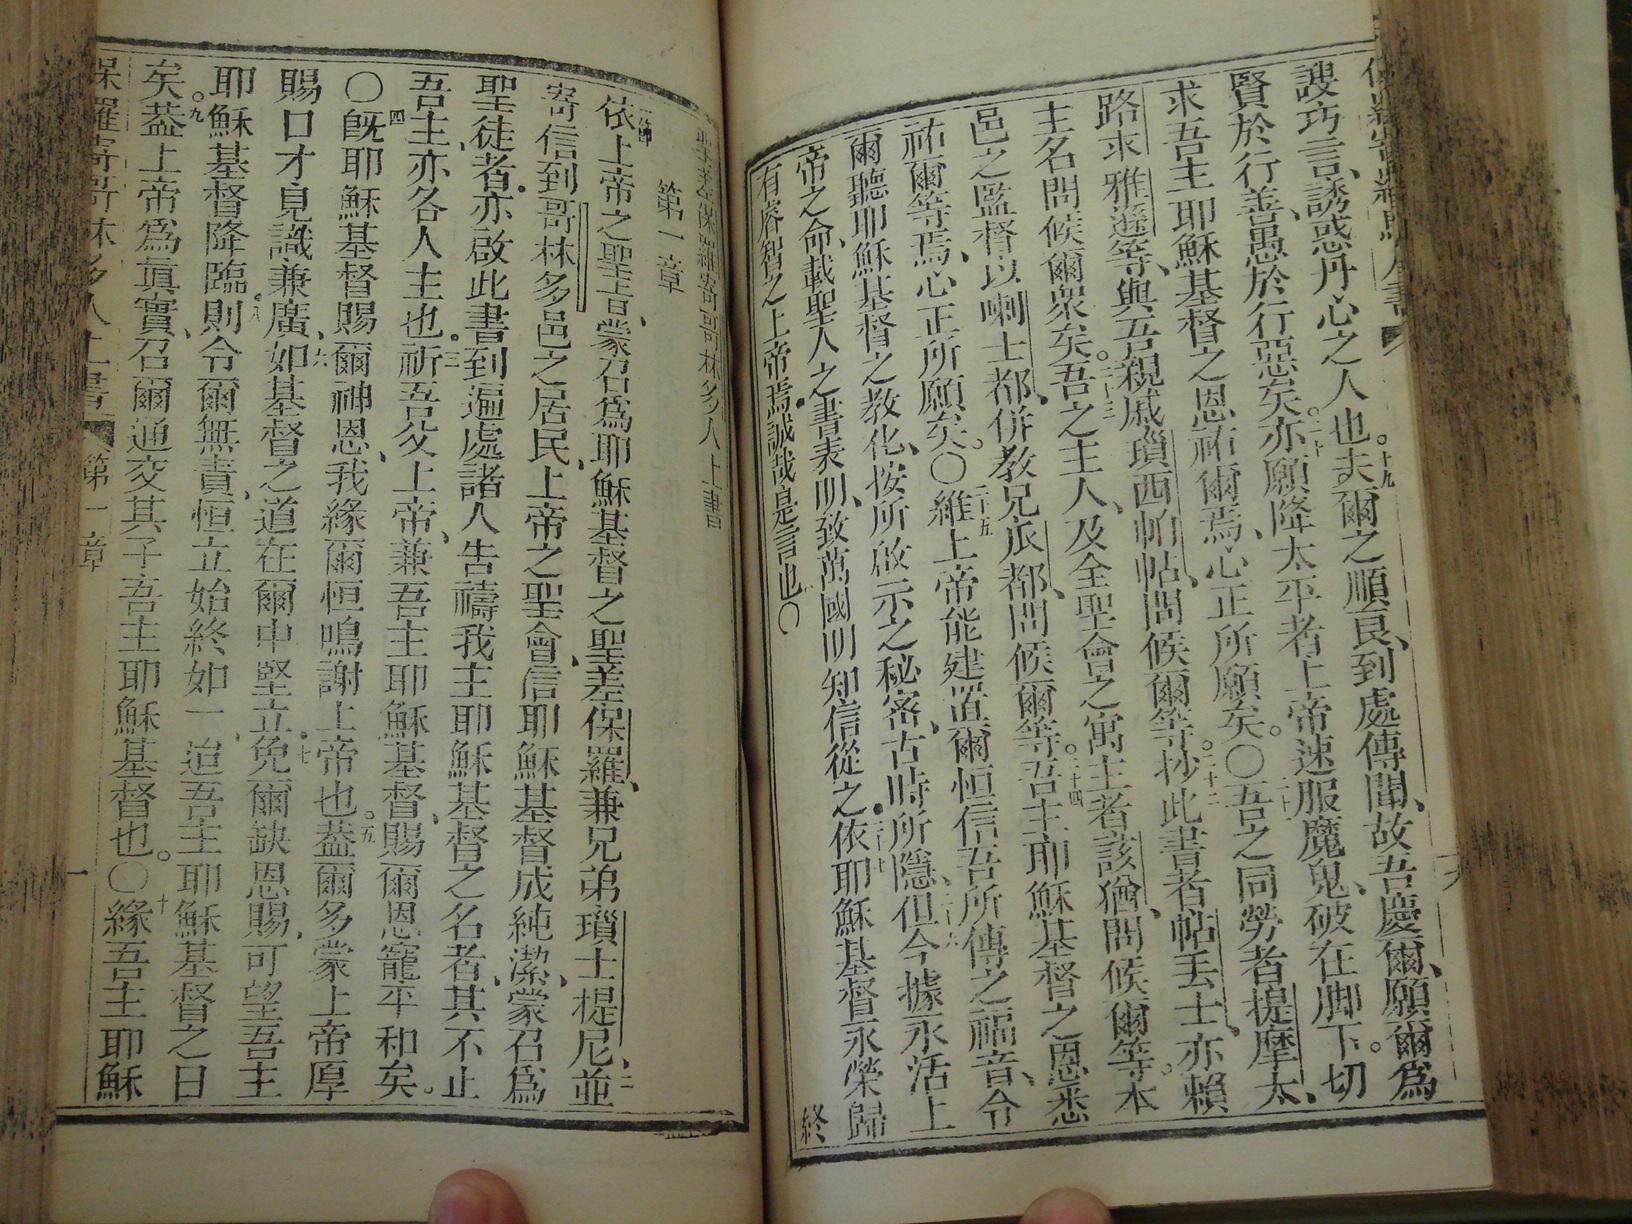 諛巧言、誘惑丹心之人也。十九夫爾之順良、到處傳聞、故吾慶爾、願爾爲
賢於行善、愚於行惡矣。二十亦願降太平者上帝速服魔鬼、破在脚下。切
求吾主耶穌基督之恩祐爾焉、心正所願矣。〇吾之同勞者提摩太、
路求雅遜等、與吾親戚瑣西帕帖、問候爾等。二十二抄此書者帖丢士、亦賴
主名問候爾衆矣。二十三吾之主人、及全聖會之寓主者該猶、問候爾等。本
邑之監督以喇士都、併教兄㡳都、問候爾等。二十四吾主耶穌基督之恩悉
祐爾等焉、心正所願矣。〇二十五維上帝能建置爾恒信吾所傳之福音、令
爾聽耶穌基督之教化、按所啟示之秘密、古時所隱、二十六但今據永活上
帝之命、載聖人之書表明、致萬國明知信從之。二十七依耶穌基督永榮歸
有睿智之上帝焉、誠哉是言也〇 終
聖差保羅寄哥林多人上書
第一章
一節依上帝之聖旨、蒙召爲耶穌基督之聖差保羅、兼兄弟瑣士提尼、二並
寄信到哥林多邑之居民、上帝之聖會、信耶穌基督成純潔、蒙召爲
聖徒者、亦啟此書到遍處諸人告禱我主耶穌基督之名者、其不止
吾主、亦各人主也。三祈吾父上帝、兼吾主耶穌基督、賜爾恩寵平和矣。
四〇旣耶穌基督賜爾神恩、我緣爾恒鳴謝上帝也。五蓋爾多蒙上帝厚
賜口才見識兼廣、六如基督之道在爾中堅立。七免爾缺恩賜、可望吾主
耶穌基督降臨、八則令爾無責、恒立始終如一、迨吾主耶穌基督之日
矣。九蓋上帝爲眞實、召爾通交其子吾主耶穌基督也。〇十緣吾主耶穌
保羅寄哥林多人上書 第一章 一